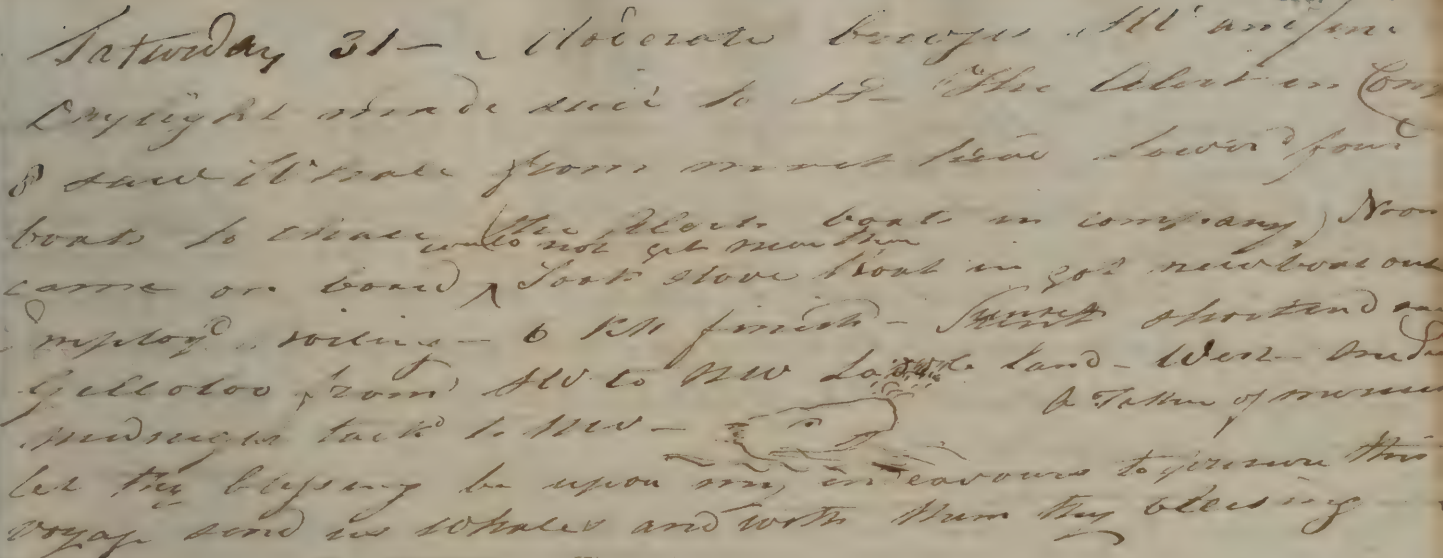 Saturday 31 – Moderate breezes All' and fine
Daylight made sail to Sd – The Alert in Com
8 saw Whale from mast head Lower'd four
boats to chase (the Alerts boats in company) Noon
could not get near them
came on board ^ Took stove boat in got new boat out
Employ'd boiling – 6 PM finish – Sunset shortend
Gilloloo from SW to NW land – West
midnight tack'd to NW –
O Father of mercies
let thy blessing be upon my endeavours to pursue this
voyage send us whales and with them thy blessing